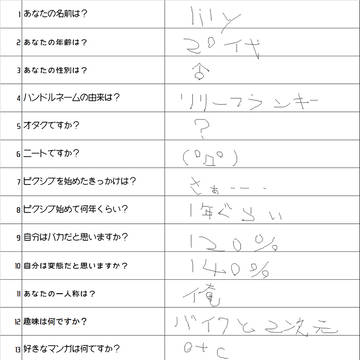 1 あなたの名前は? lily
2 あなたの年齢は? 20代
3 あなたの性別は?
4 ハンドルネームの由来は? リリーフランキー
5 オタクですか? ?
6 ニートですか? (゜Д゜)
7 ピクシブを始めたきっかけは? さぁ・・・・
8 ピクシブ始めて何年くらい? 1年ぐらい
9 自分はバカだと思いますか? 120%
10 自分は変態だと思いますか? 140%
11 あなたの一人称は? 俺
12 趣味は何ですか? バイクと2次元
13 好きなマンガは何てすか? otc